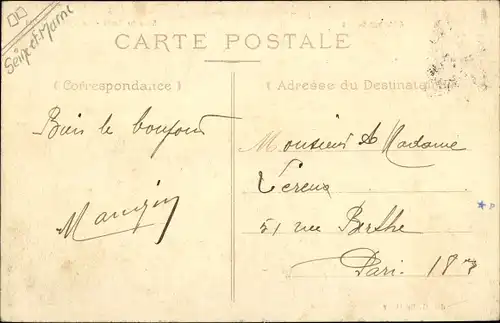 Seine et Marne
CARTE POSTALE
(Correspondance)
(Adresse du Destinataire)
Bien le bonjour
Monsieur & Madame
51 rue Berthe
Paris 18e